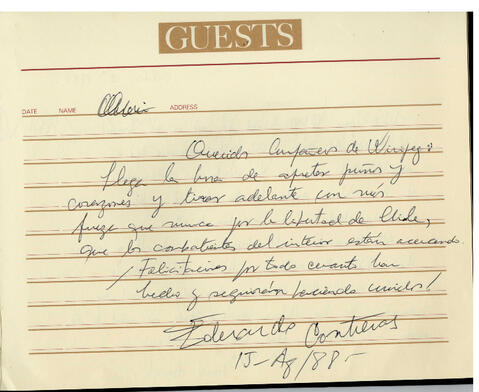 GUESTS
DATE NAME ADDRESS
Querido Compañeros de Winnipeg:
Llega la hora de apretar puños y
corazones y tirar adelante con más
fuerza que nunca por la libertad de Chile,
que los combatientes del interior están acercando.
¡Felicitaciones por todo cuanto han
hecho y seguirán haciendo unidos!
Eduardo Contreras
15-Ag/88.-